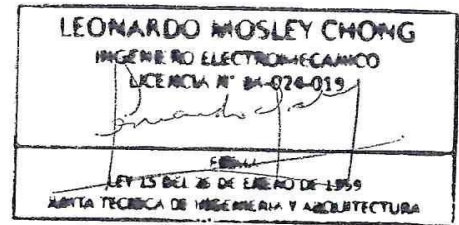 LEONARDO MOSLEY CHONG
INGENIERO ELECTROMECANICO
LICENCIA N° 84-024-019
FIRMA
LEY 15 DEL 26 DE ENERO DE 1959
JUNTA TECNICA DE INGENIERIA Y ARQUITECTURA